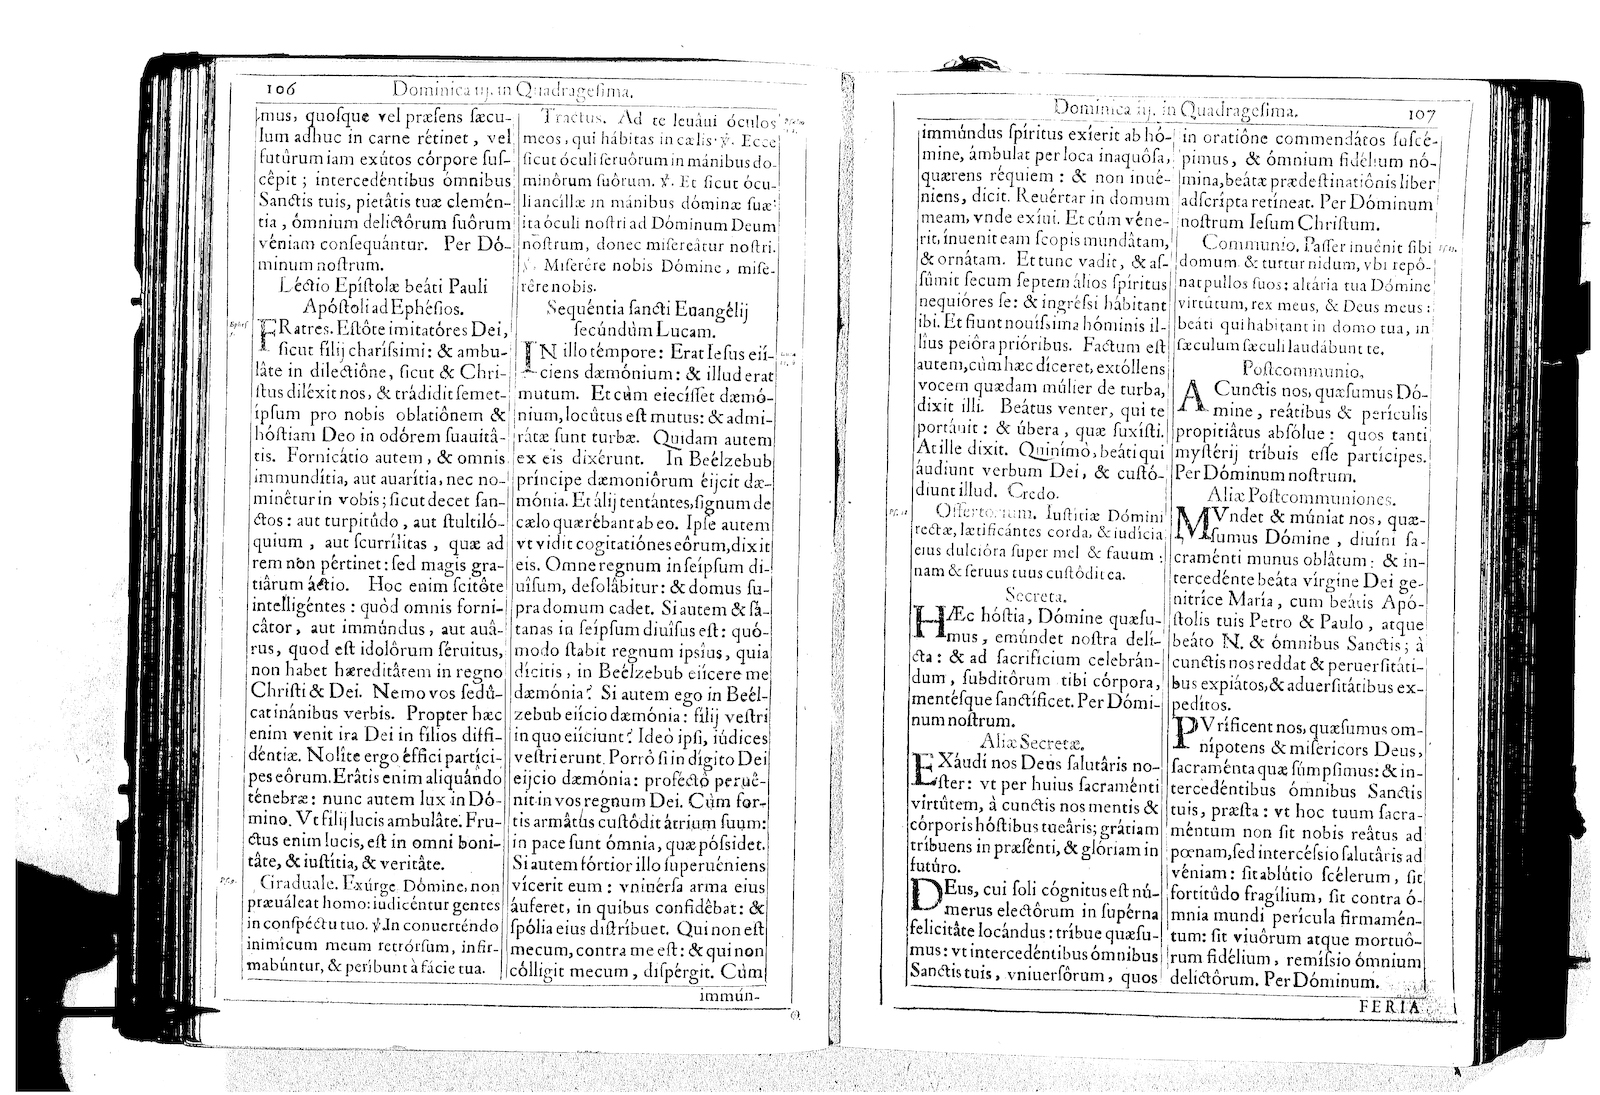 106
Dominica iij. in Quadragesima.
mus, quoſque vel præſens ſæcu-
lum adhuc in carne rétinet, vel
futûrum iam exútos córpore ſuſ-
cêpit; intercedéntibus ómnibus
Sanctis tuis, pietâtis tuæ clemén-
tia, ómnium delictôrum ſuôrum
véniam conſequántur. Per Dó-
minum noſtrum.
Léctio Epíſtolæ beáti Pauli
Apóſtoli ad Ephéſios.
FRatres. Eſtôte imitatóres Dei,
ſicut filij chariſsimi: & ambu-
lâte in dilectiône, ſicut & Chri-
ſtus diléxit nos, & trádidit ſemet-
ípſum pro nobis oblatiônem &
hóſtiam Deo in odórem ſuauitâ-
tis. Fornicátio autem, & omnis
immundítia, aut auarítia, nec no-
minêtur in vobis; ſicut decet ſan-
ctos: aut turpitúdo, aut ſtultiló-
quium, aut ſcurrílitas, quæ ad
rem non pértinet: ſed magis gra-
tiârum áctio. Hoc enim ſcitôte
intelligéntes: quòd omnis forni-
câtor, aut immúndus, aut auâ-
rus, quod eſt idolôrum ſéruitus,
non habet hæreditârem in regno
Chriſti & Dei. Nemo vos ſedû-
cat inánibus verbis. Propter hæc
enim venit ira Dei in filios diffi-
déntiæ. Nolíte ergo éffici partíci-
pes eôrum. Erâtis enim aliquándo
ténebræ: nunc autem lux in Dó-
mino. Vt filij lucis ambulâte. Fru-
ctus enim lucis, eſt in omni boni-
tâte, & iuſtítia, & veritâte.
Graduale. Exúrge Dómine, non
præuáleat homo: iudicéntur gentes
in conſpéctu tuo. ℣. In conuerténdo
inimícum meum retrórſum, infir-
mabúntur, & períbunt à fácie tua.
Tractus. Ad te leuáui óculos
meos, qui hábitas in cælis. ℣. Ecce
ſicut óculi ſeruôrum in mánibus do-
minôrum ſuôrum. ℣. Et ſicut ócu-
li ancíllæ in mánibus dóminæ ſuæ:
ita óculi noſtri ad Dóminum Deum
noſtrum, donec miſereâtur noſtri.
℣. Miſerére nobis Dómine, miſe-
rére nobis.
Sequéntia ſancti Euangélij
ſecúndùm Lucam.
IN illo témpore: Erat Ieſus eií-
ciens dæmónium: & illud erat
mutum. Et cùm eieciſſet dæmó-
nium, locûtus eſt mutus: & admi-
râtæ ſunt turbæ. Quidam autem
ex eis dixérunt. In Beélzebub
príncipe dæmoniôrum éijcit dæ-
mónia. Et álij tentántes, ſignum de
cælo quærébant ab eo. Ipſe autem
vt vidit cogitatiónes eôrum, dixit
eis. Omne regnum in ſeípſum di-
uíſum, deſolâbitur: & domus ſu-
pra domum cadet. Si autem & ſá-
tanas in ſeípſum diuíſus eſt: quó-
modo ſtabit regnum ipsíus, quia
dícitis, in Beélzebub eiícere me
dæmónia? Si autem ego in Beél-
zebub eiício dæmónia: fílij veſtri
in quo eiíciunt? Ideò ipſi, iúdices
veſtri erunt. Porrò ſi in dígito Dei
eijcio dæmónia: profécto peruê-
nit in vos regnum Dei. Cùm for-
tis armâtus cuſtódit átrium ſuum:
in pace ſunt ómnia, quæ póſsidet.
Si autem fórtior illo ſuperuéniens
vícerit eum: vniuérſa arma eius
áuferet, in quibus confidêbat: &
ſpólia eius diſtríbuet. Qui non eſt
mecum, contra me eſt: & qui non
cólligit mecum, diſpérgit. Cùm
immún-
Dominica iij. in Quadragesima.
107
immúndus ſpíritus exíerit ab hó-
mine, ámbulat per loca inaquôſa,
quærens réquiem: & non inué-
niens, dicit. Reuértar in domum
meam, vnde exíui. Et cúm véne-
rit, ínuenit eam ſcopis mundâtam,
& ornátam. Et tunc vadit, & aſ-
ſúmit ſecum ſeptem álios ſpíritus
nequióres ſe: & ingréſsi hábitant
ibi. Et fiunt nouíſsima hóminis il-
líus peiôra prióribus. Factum eſt
autem, cùm hæc díceret, extóllens
vocem quædam múlier de turba,
dixit illi. Beátus venter, qui te
portáuit: & úbera, quæ ſuxíſti.
At ille dixit. Quinímò, beáti qui
áudiunt verbum Dei, & cuſtó-
diunt illud. Credo.
Offertorium. Iuſtítiæ Dómini
rectæ, lætificántes corda, & iudícia
eius dulcióra ſuper mel & fauum:
nam & ſeruus tuus cuſtódit ea.
Secreta.
HÆc hóſtia, Dómine quæſu-
mus, emúndet noſtra delí-
cta: & ad ſacrifícium celebrán-
dum, ſubditôrum tibi córpora,
mentéſque ſanctíficet. Per Dómi-
num noſtrum.
Aliæ Secretæ.
EXáudi nos Deus ſalutâris no-
ſter: vt per huius ſacraménti
virtûtem, à cunctis nos mentis &
córporis hóſtibus tueâris; grátiam
tríbuens in præſénti, & glóriam in
futúro.
DEus, cui ſoli cógnitus eſt nú-
merus electôrum in ſupérna
felicitâte locándus: tríbue quæſu-
mus: vt intercedéntibus ómnibus
Sanctis tuis, vniuerſôrum, quos
in oratiône commendátos ſuſcé-
pimus, & ómnium fidélium nó-
mina, beátæ prædeſtinatiônis liber
adſcrípta retíneat. Per Dóminum
noſtrum Ieſum Chriſtum.
Communio. Paſſer inuénit ſibi
domum & turtur nidum, vbi repô-
nat pullos ſuos: altária tua Dómine
virtútum, rex meus, & Deus meus:
beáti qui habitant in domo tua, in
ſæculum ſæculi laudábunt te.
Poſtcommunio.
A Cunctis nos, quæſumus Dó-
mine, reátibus & perículis
propitiâtus abſólue: quos tanti
myſtérij tríbuis eſſe partícipes.
Per Dóminum noſtrum.
Aliæ Poſtcommuniones.
MVndet & múniat nos, quæ-
ſumus Dómine, diuíni ſa-
craménti munus oblâtum: & in-
tercedénte beáta vírgine Dei ge-
nitríce María, cum beátis Apó-
ſtolis tuis Petro & Paulo, atque
beáto N. & ómnibus Sanctis; à
cunctis nos reddat & peruerſitáti-
bus expiátos, & aduerſitátibus ex-
pedítos.
PVríficent nos, quæſumus om-
nípotens & miſéricors Deus,
ſacraménta quæ ſúmpſimus: & in-
tercedéntibus ómnibus Sanctis
tuis, præſta: vt hoc tuum ſacra-
méntum non ſit nobis reâtus ad
pœnam, ſed intercéſsio ſalutâris ad
véniam: ſit ablútio ſcélerum, ſit
fortitûdo fragílium, ſit contra ó-
mnia mundi perícula firmamén-
tum: ſit viuôrum atque mortuô-
rum fidélium, remíſsio ómnium
delictôrum. Per Dóminum.
FERIA